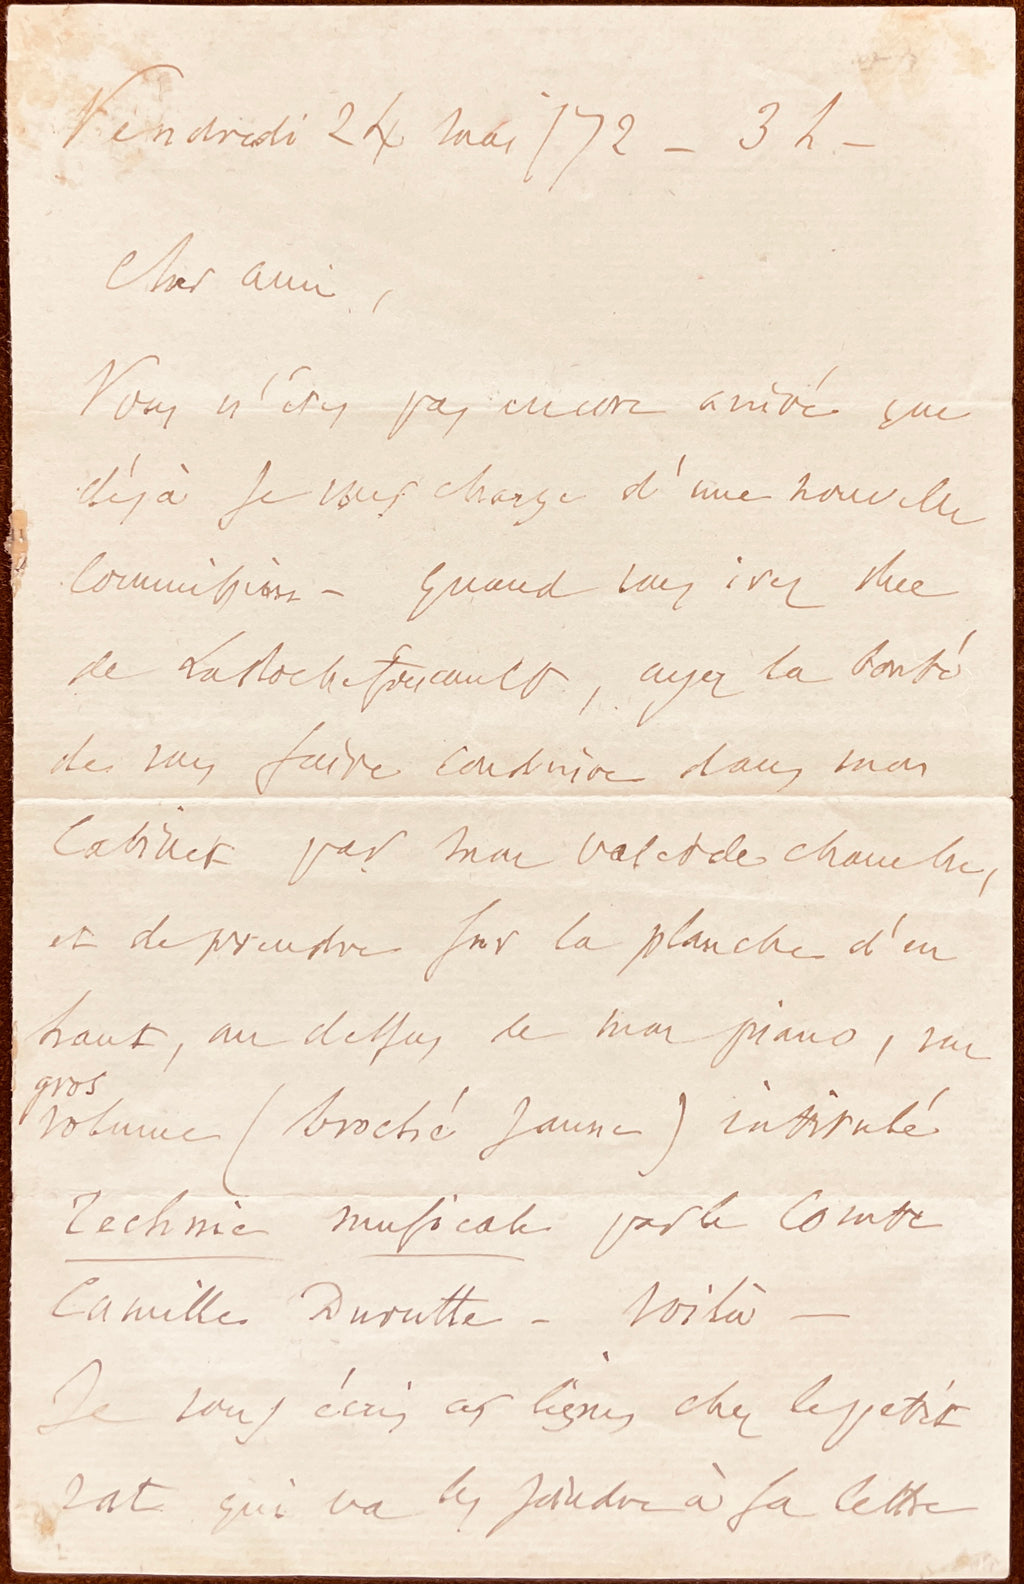 Vendredi 24 mai /72 - 3 h -
Cher ami,
Vous n'êtes pas encore arrivé que
déjà je vous charge d'une nouvelle
commission - quand vous irez rue
de LaRochefoucault, ayez la bonté
de vous faire conduire dans mon
cabinet par mon valet de chambre,
et de prendre sur la planche d'en
haut, au dessus de mon piano, un
gros
volume (broché jaune) intitulé
Technie musicale par le Comte
Camille Durutte - voilà -
Je vous écris ces lignes chez le petit
rat qui va les joindre à sa lettre